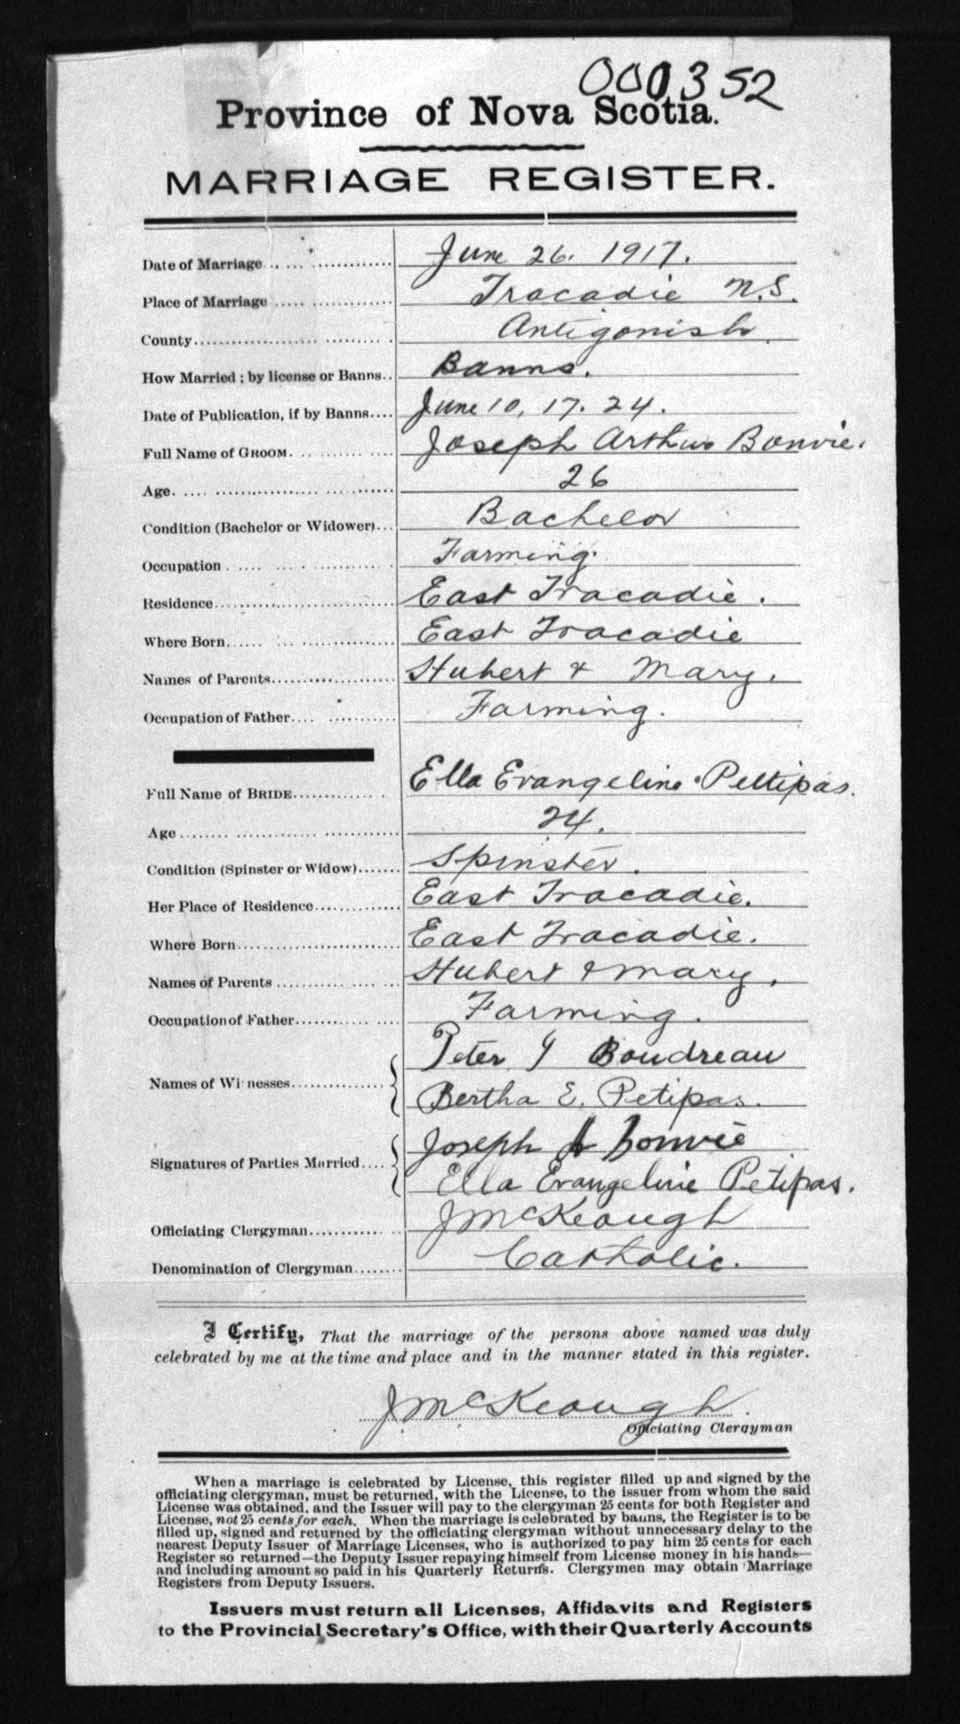 000352
Province of Nova Scotia.
MARRIAGE REGISTER.
Date of Marriage June 26. 1917.
Place of Marriage Tracadie N.S.
County Antigonish
How Married; by license or Banns.. Banns.
Date of Publication, if by Banns.... June 10, 17. 24.
Full Name of GROOM. Joseph Arthur Bonvie.
Age. 26
Condition (Bachelor or Widower)... Bachelor
Occupation Farming.
Residence East Tracadie.
Where Born East Tracadie
Names of Parents Hubert & Mary.
Occupation of Father Farming.
Full Name of BRIDE Ella Evangeline Pettipas.
Age 24.
Condition (Spinster or Widow) Spinster.
Her Place of Residence East Tracadie.
Where Born East Tracadie.
Names of Parents Hubert & Mary.
Occupation of Father Farming.
Peter J Boudreau
Names of Witnesses
Bertha E. Petipas.
Joseph A Bonvie
Signatures of Parties Married....
Ella Evangeline Petipas.
Officiating Clergyman J McKeough
Denomination of Clergyman Catholic.
I Certify, That the marriage of the persons above named was duly
celebrated by me at the time and place and in the manner stated in this register.
J McKeough.
Officiating Clergyman
When a marriage is celebrated by License, this register filled up and signed by the
officiating clergyman, must be returned, with the License, to the issuer from whom the said
License was obtained, and the Issuer will pay to the clergyman 25 cents for both Register and
License, not 25 cents for each. When the marriage is celebrated by banns, the Register is to be
filled up, signed and returned by the officiating clergyman without unnecessary delay to the
nearest Deputy Issuer of Marriage Licenses, who is authorized to pay him 25 cents for each
Register so returned—the Deputy Issuer repaying himself from License money in his hands—
and including amount so paid in his Quarterly Returns. Clergymen may obtain Marriage
Registers from Deputy Issuers.
Issuers must return all Licenses, Affidavits and Registers
to the Provincial Secretary's Office, with their Quarterly Accounts